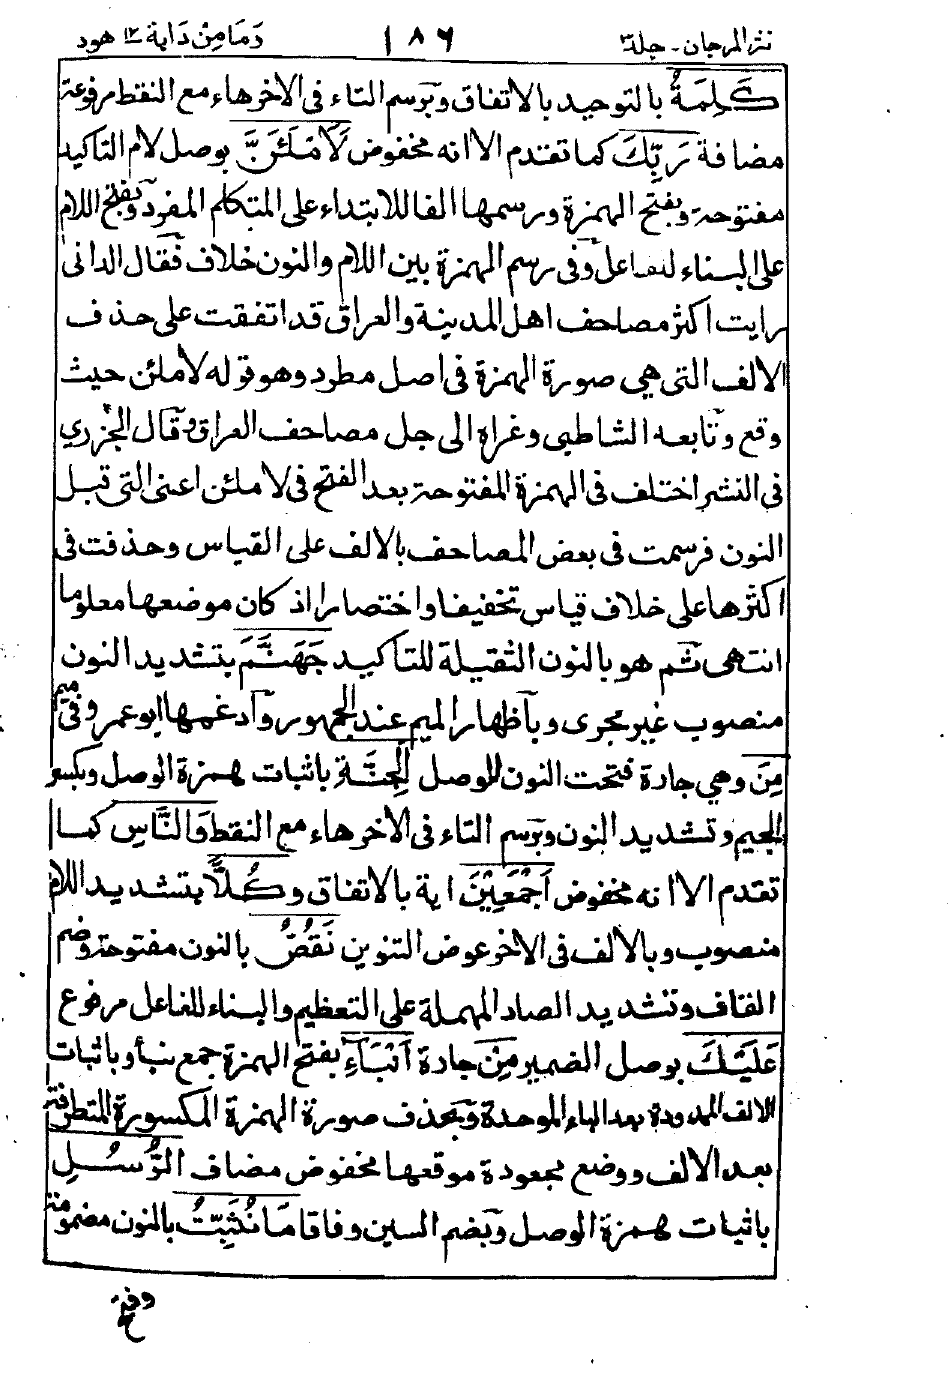 نثر المرجان - جلد ٣ ١٨٦ وَمَا مِنْ دَابة ١٢ هود
كَلِمَةُ بالتوحيد بالاتفاق وبرسم التاء فى الاخرهاء مع النقط مرفوعة
مضافة رَبِّكَ كما تقدم الا انه مخفوض لَاَمْلَئَنَّ بوصل لام التاكيد
مفتوحة وبفتح الهمزة ورسمها الفا للابتداء على المتكلم المفرد وبفتح اللام
على البناء للفاعل وفى رسم الهمزة بين اللام والنون خلاف فقال الدانى
رايت اكثر مصاحف اهل المدينة والعراق قد اتفقت على حذف
الالف التى هي صورة الهمزة فى اصل مطرد وهو قوله لاملئن حيث
وقع وتابعه الشاطبى وغراه الى جل مصاحف العراق وقال الجزري
فى النشر اختلف فى الهمزة المفتوحة بعد الفتح فى لاملئن اعنى التى قبل
النون فرسمت فى بعض المصاحف بالالف على القياس وحذفت فى
اكثرها على خلاف قياس تخفيفا واختصارا اذ كان موضعها معلوما
انتهى ثم هو بالنون الثقيلة للتاكيد جَهَنَّمَ بتشديد النون
منصوب غير مجرى وباظهار الميم عند الجمهور وادغمها ابو عمرو فى ميم
مِنَ وهي جارة فتحت النون للوصل الْجِنَّةِ باثبات همزة الوصل وبكسر
الجيم وتشديد النون وبرسم التاء فى الاخرهاء مع النقط وَالنَّاسِ كما
تقدم الا انه مخفوض اَجْمَعِيْنَ اية بالاتفاق وَكُلًّا بتشديد اللام
منصوب وبالالف فى الاخر عوض التنوين نَقُصُّ بالنون مفتوحة وضم
القاف وتشديد الصاد المهملة على التعظيم والبناء للفاعل مرفوع
عَلَيْكَ بوصل الضمير مِنْ جارة اَنْبَآءِ بفتح الهمزة جمع نبأ وباثبات
الالف الممدودة بعد الباء الموحدة وبحذف صورة الهمزة المكسورة المتطرفة
بعد الالف ووضع مجعودة موقعها مخفوض مضاف الرُّسُلِ
باثبات همزة الوصل وبضم السين وفاقا مَا نُثَبِّتُ بالنون مضمومة
وفتح